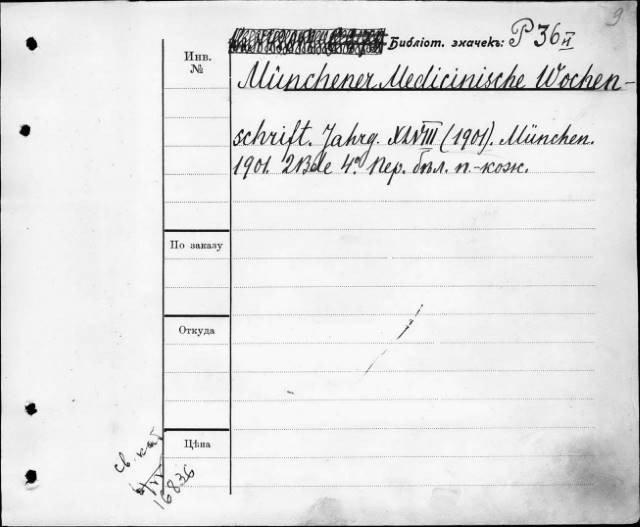 9
Библіот. значекъ: P 36 II
Инв.
№
Münchener Medicinische Wochen-
schrift. Jahrg. XLVIII (1901). München.
1901. 2 Bde 4º. Пер. бѣл. п.-кож.
По заказу
Откуда
Цѣна
св. кат.
16836